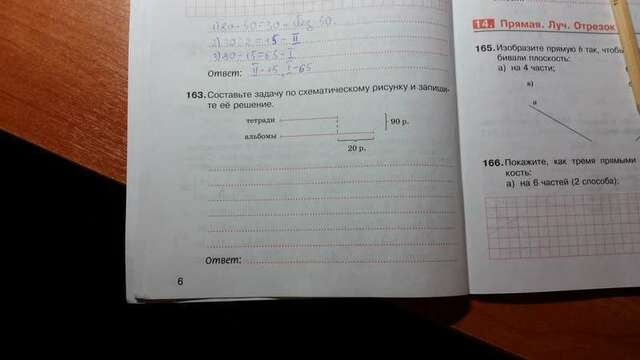 1) 80-50=30 - без 50.
2) 30:2=15 - II
3) 80-15=65 - I
Ответ: II-15, I-65
163. Составьте задачу по схематическому рисунку и запиши-
те её решение.
тетради
90 р.
альбомы
20 р.
Ответ:
6
14. Прямая. Луч. Отрезок
165. Изобразите прямую b так, чтобы
бивали плоскость:
а) на 4 части;
а)
a
166. Покажите, как тремя прямыми
кость:
а) на 6 частей (2 способа);